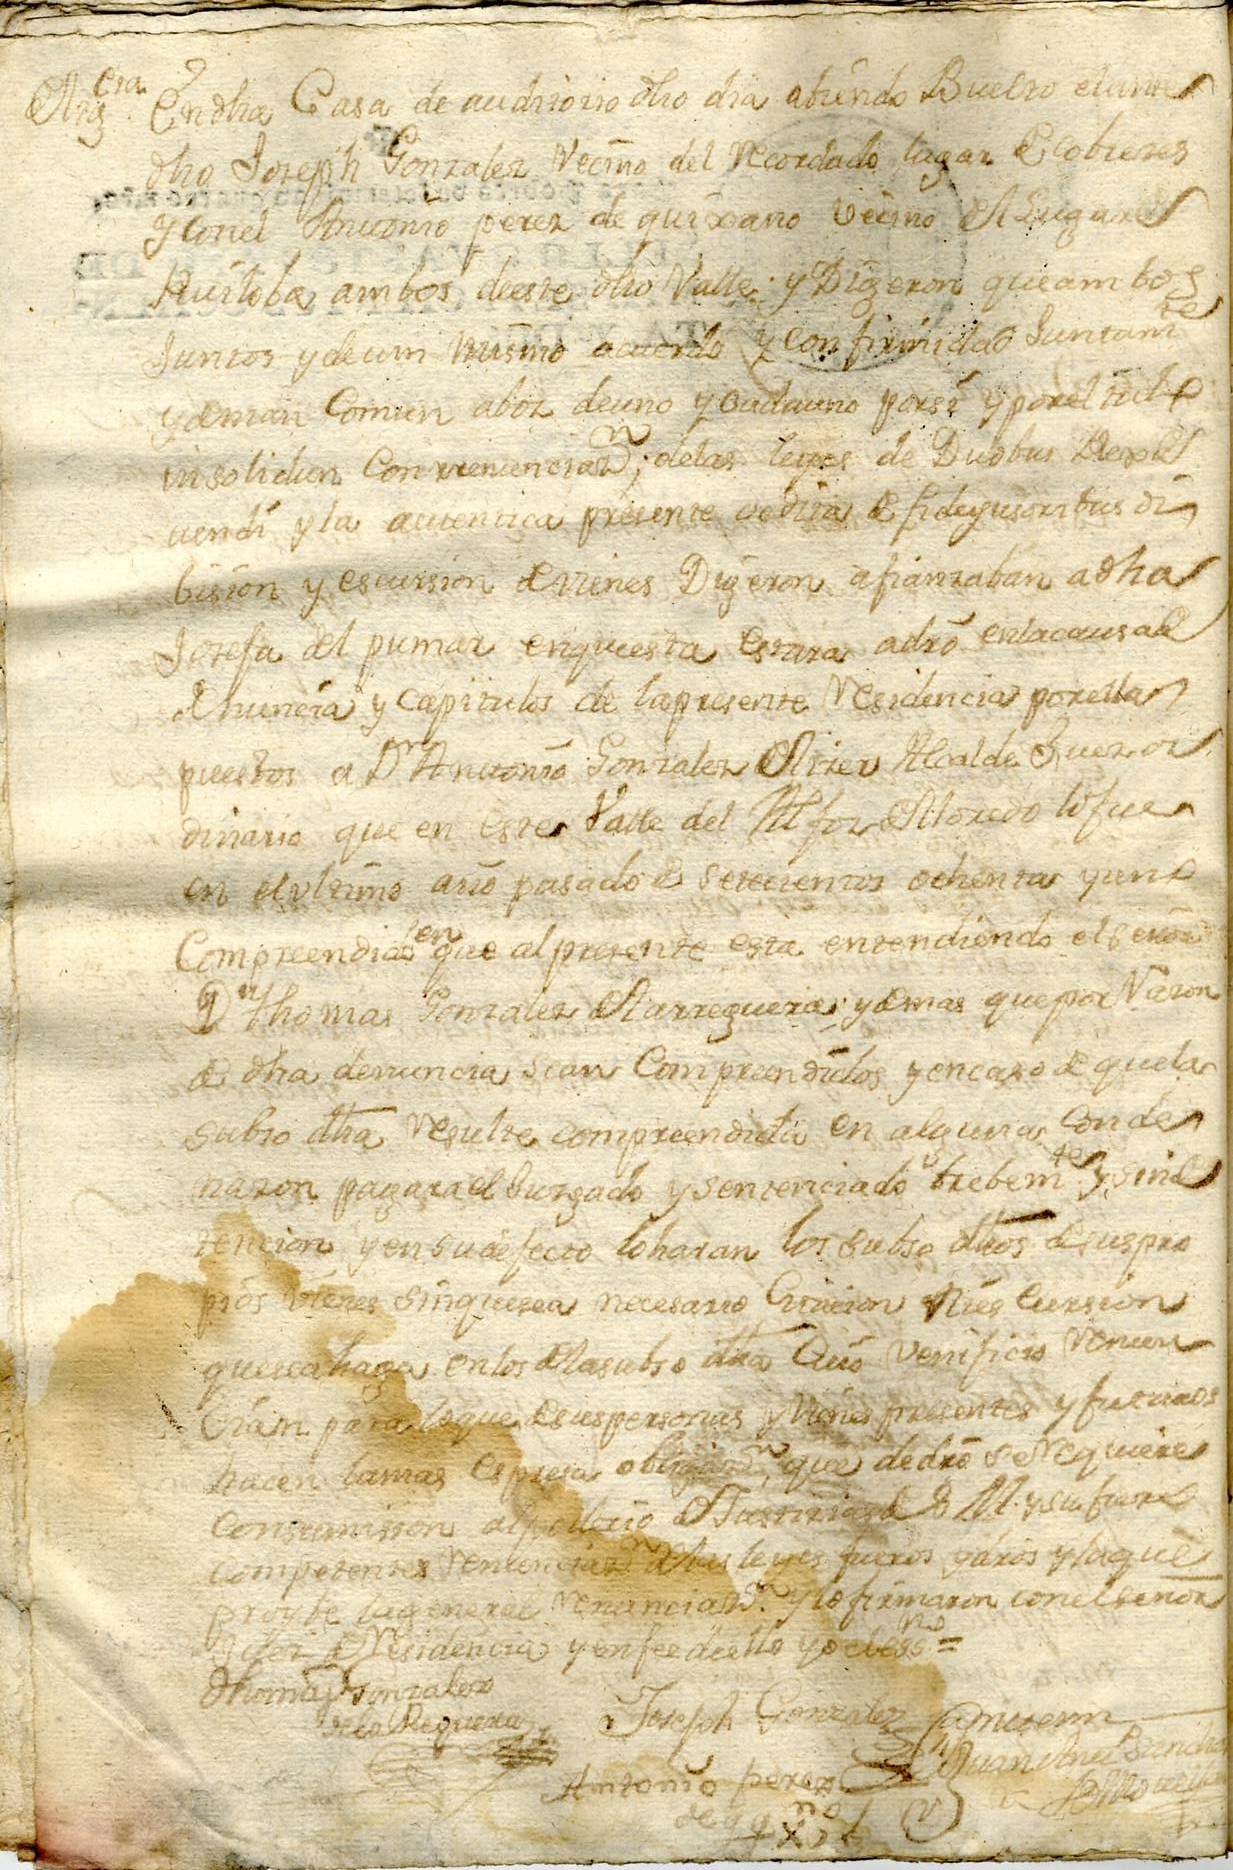 En dha Casa de auditorio dho dia abiendo Buelto el ante
dho Joseph Gonzalez Vecino del recordado lugar de Cobreces
y con el Antonio perez de quixano vecino del Lugar de
Ruiloba ambos de este dho Valle; y Digeron que ambos
Juntos y de un mismo acuerdo y conformidad Juntamte
y de man comun a boz de uno y cada uno por si y por el todo
insolidun con renunciazn; de las leyes de Duobus Rex de
vendi y la autentica presente codita de fideyusoribus di
bision y escursion de vienes Digeron afianzaban a dha
Josefa del pumar en que esta estara a dro en la causa de
denuncia y capitulos de la presente residencia por ella
puestos a Dn Antonio Gonzalez Alcalde Juez or
dinario que en este Valle del Alfoz de lloredo lo fue
en el ultimo año pasado de setecientos ochenta y uno
Compreendido en que al presente esta entendiendo el señor
Dn Thomas Gonzalez de la rreguera; y demas que por razon
de dha denuncia sean Compreendidos y en caso de que la
subso dha resulte compreendida en alguna Conde
nazon pagara el Juzgado y sentenciado brebemte y sin de
tencion y en su defecto lo haran los subso dhos de sus pro
pios vienes sin que sea necesario Citacion ni escursion
que se a haga en los de la subso dha Cuio venificio renun
cian para lo que de sus personas y vienes presentes y futuros
hacen la mas espresa obligazn, que de dro se requiere
con sumision al poderio de Justicias de S. M. y su fuero
competente renunciazn de las leyes fueros y dros y la que
proybe la general renunciazn. y lo firmaron con el señor
Juez de Residencia y en fee de ello yo el essno =
Thomas Gonzalez
de la Reguera
Joseph Gonzalez
Antemi
Juan
Antonio perez
de qqxno